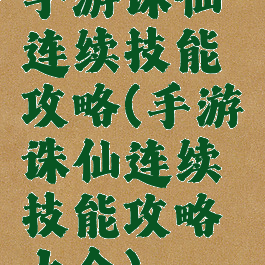 手游诛仙
连续技能
攻略(手游
诛仙连续
技能攻略
大全)